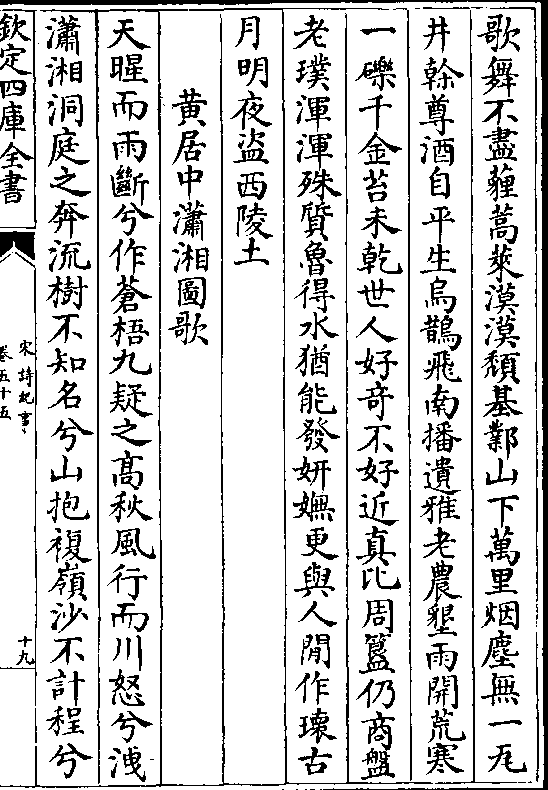 歌舞不盡薤蒿萊漠漠頽基鄴山下萬里烟塵無一瓦
井榦尊酒自平生烏鵲飛南播遺雅老農墾雨開荒寒
一礫千金苔未乾世人好奇不好近真比周簋仍商盤
老璞渾渾殊質魯得水猶能發妍嫵更與人閒作壊古
月明夜盗西陵土
黄居中瀟湘圖歌
天暒而雨斷兮作蒼梧九疑之髙秋風行而川怒兮洩
瀟湘洞庭之奔流樹不知名兮山抱複嶺沙不計程兮
欽定四庫全書
宋詩紀事
卷五十五
十九